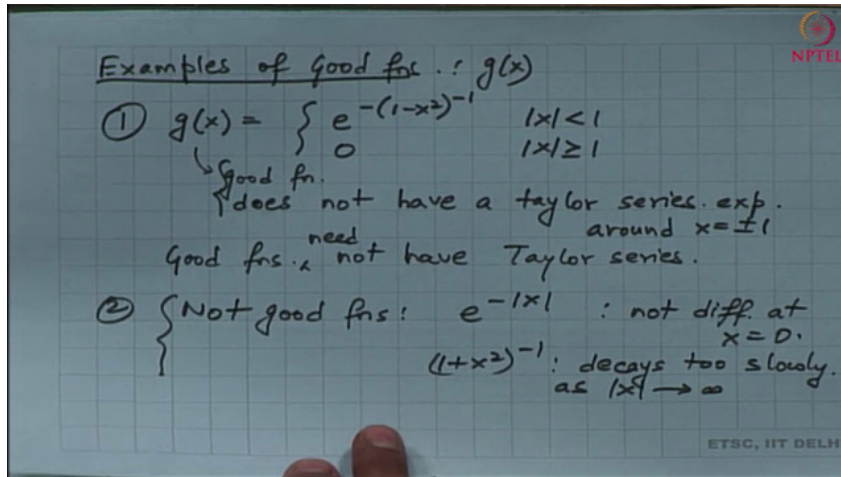 Examples of Good fns.: g(x)
NPTEL
① g(x) = { e^-(1-x²)^-1 |x| < 1
0 |x| ≥ 1
↳ good fn.
does not have a taylor series. exp.
around x = ±1
Good fns. need not have Taylor series.
② { Not good fns: e^-|x| : not diff. at
x = 0.
(1+x²)^-1 : decays too slowly.
as |x| → ∞
ETSC, IIT DELH